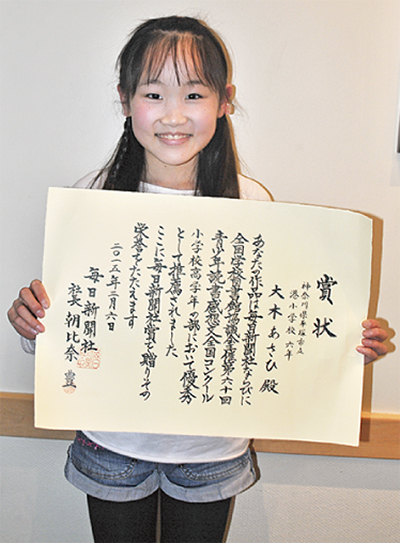 賞状
神奈川県平塚市立
港小学校 六年
大木あさひ殿
あなたの作品は毎日新聞社ならびに
全国学校図書館協議会主催第六十回
青少年読書感想文全国コンクール
小学校高学年の部において優秀
として推薦されました
ここに毎日新聞社賞を贈りその
栄誉をたたえます
二〇一五年二月六日
毎日新聞社
社長 朝比奈 豊